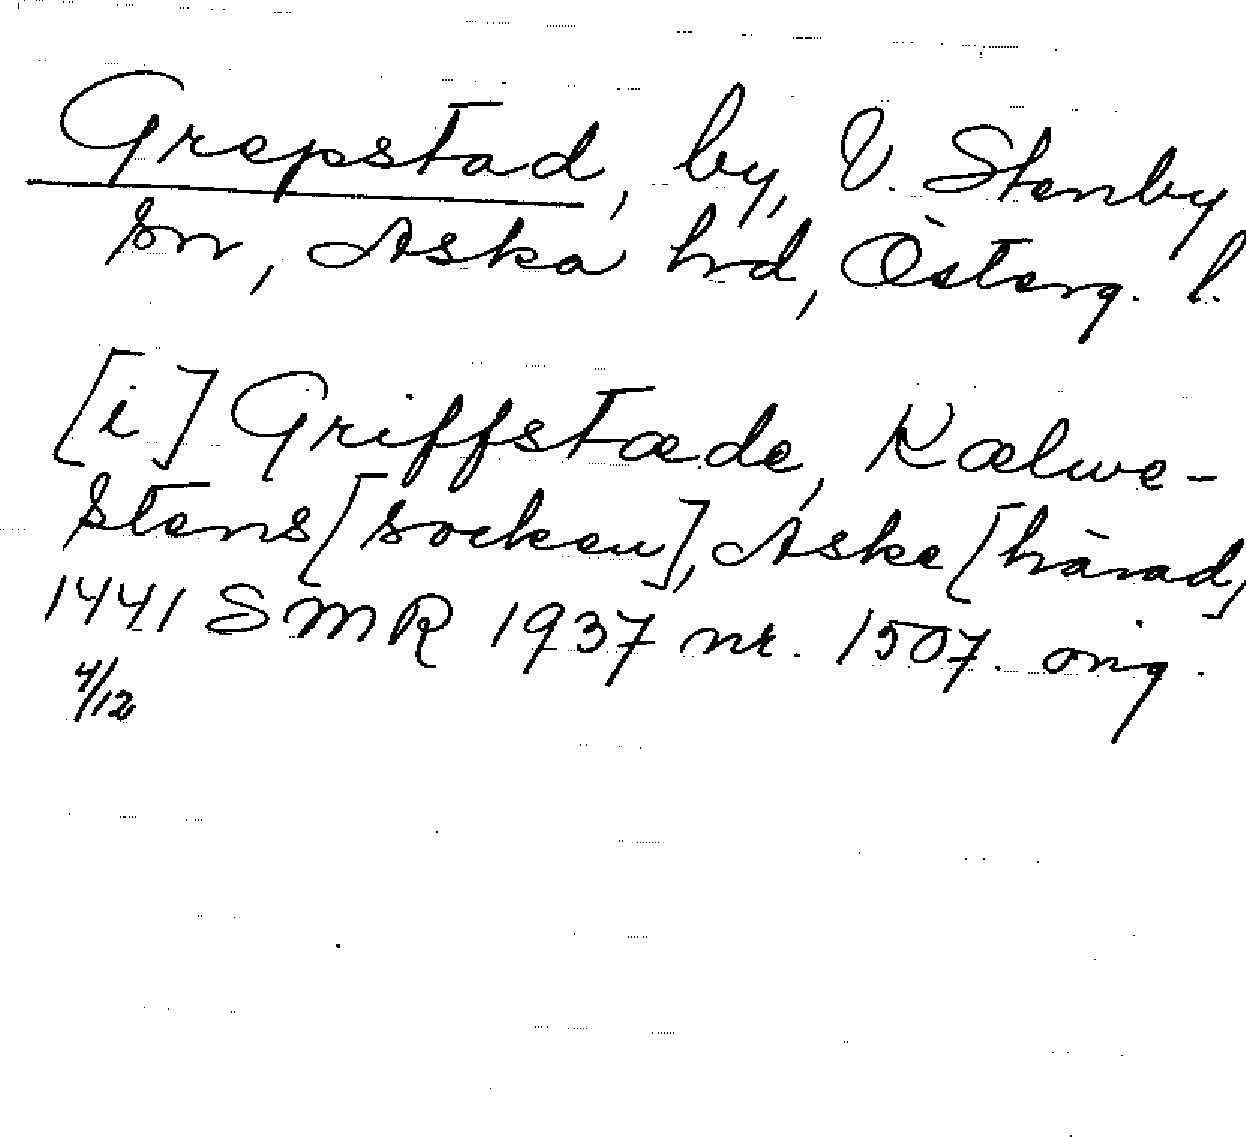 Grepstad, by, V. Stenby
sn, Aska hrd, Österg. l.
[i] Griffstæde, Kælwe-
stens [socken], Aske [härad]
1441 SMR 1937 nr. 1507. orig.
4/12